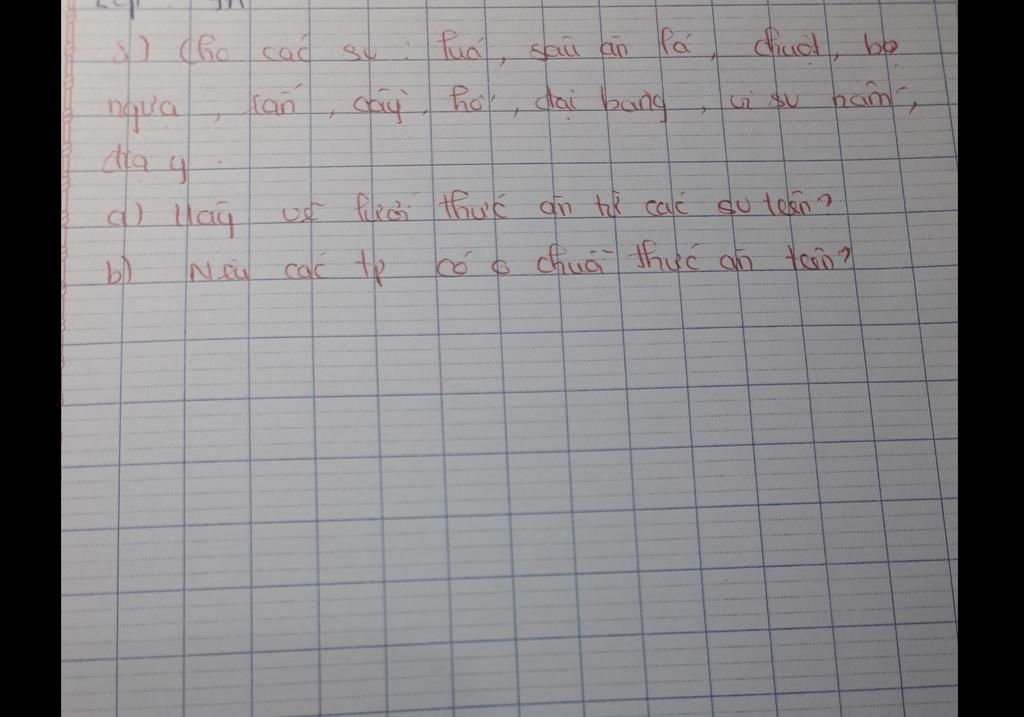 5) Cho các sv : lúa, sâu ăn lá, chuột, bọ
ngựa, rắn, cây, hổ, đại bàng, vi sv, nấm,
địa y.
a) Hãy vẽ lưới thức ăn từ các sv trên?
b) Nêu các tp có ở chuỗi thức ăn trên?